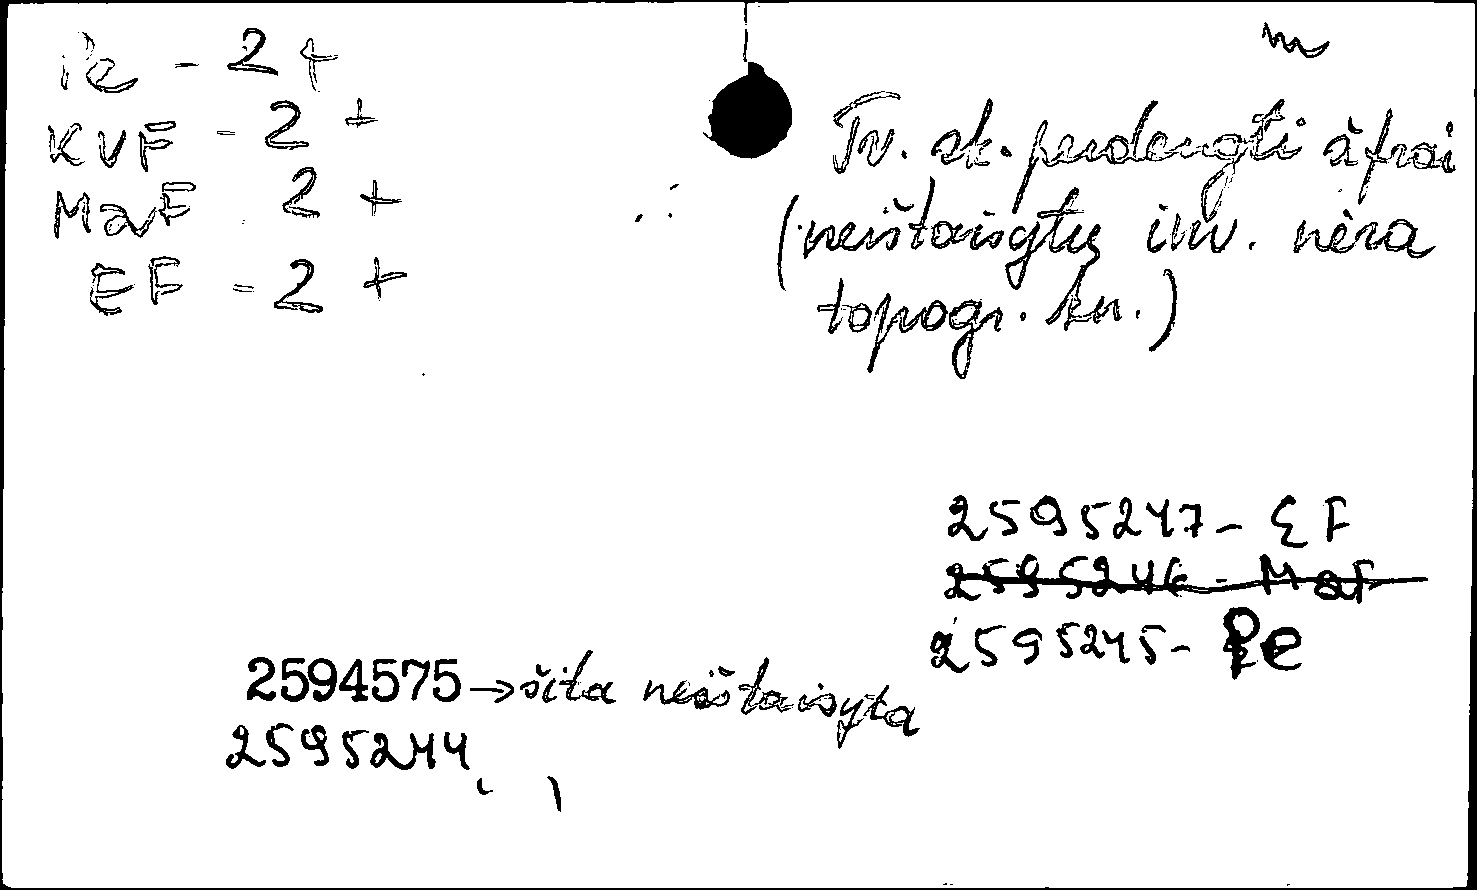 Pe - 2 +
KVF - 2 +
MaF - 2 +
EF - 2 +
Tv. sk. perdengti šifrai
(neištaisytų inv. nėra
topogr. kn.)
2595247 - EF
2595246 - MaF
2595245 - Pe
2594575 → šita neištaisyta
2595244